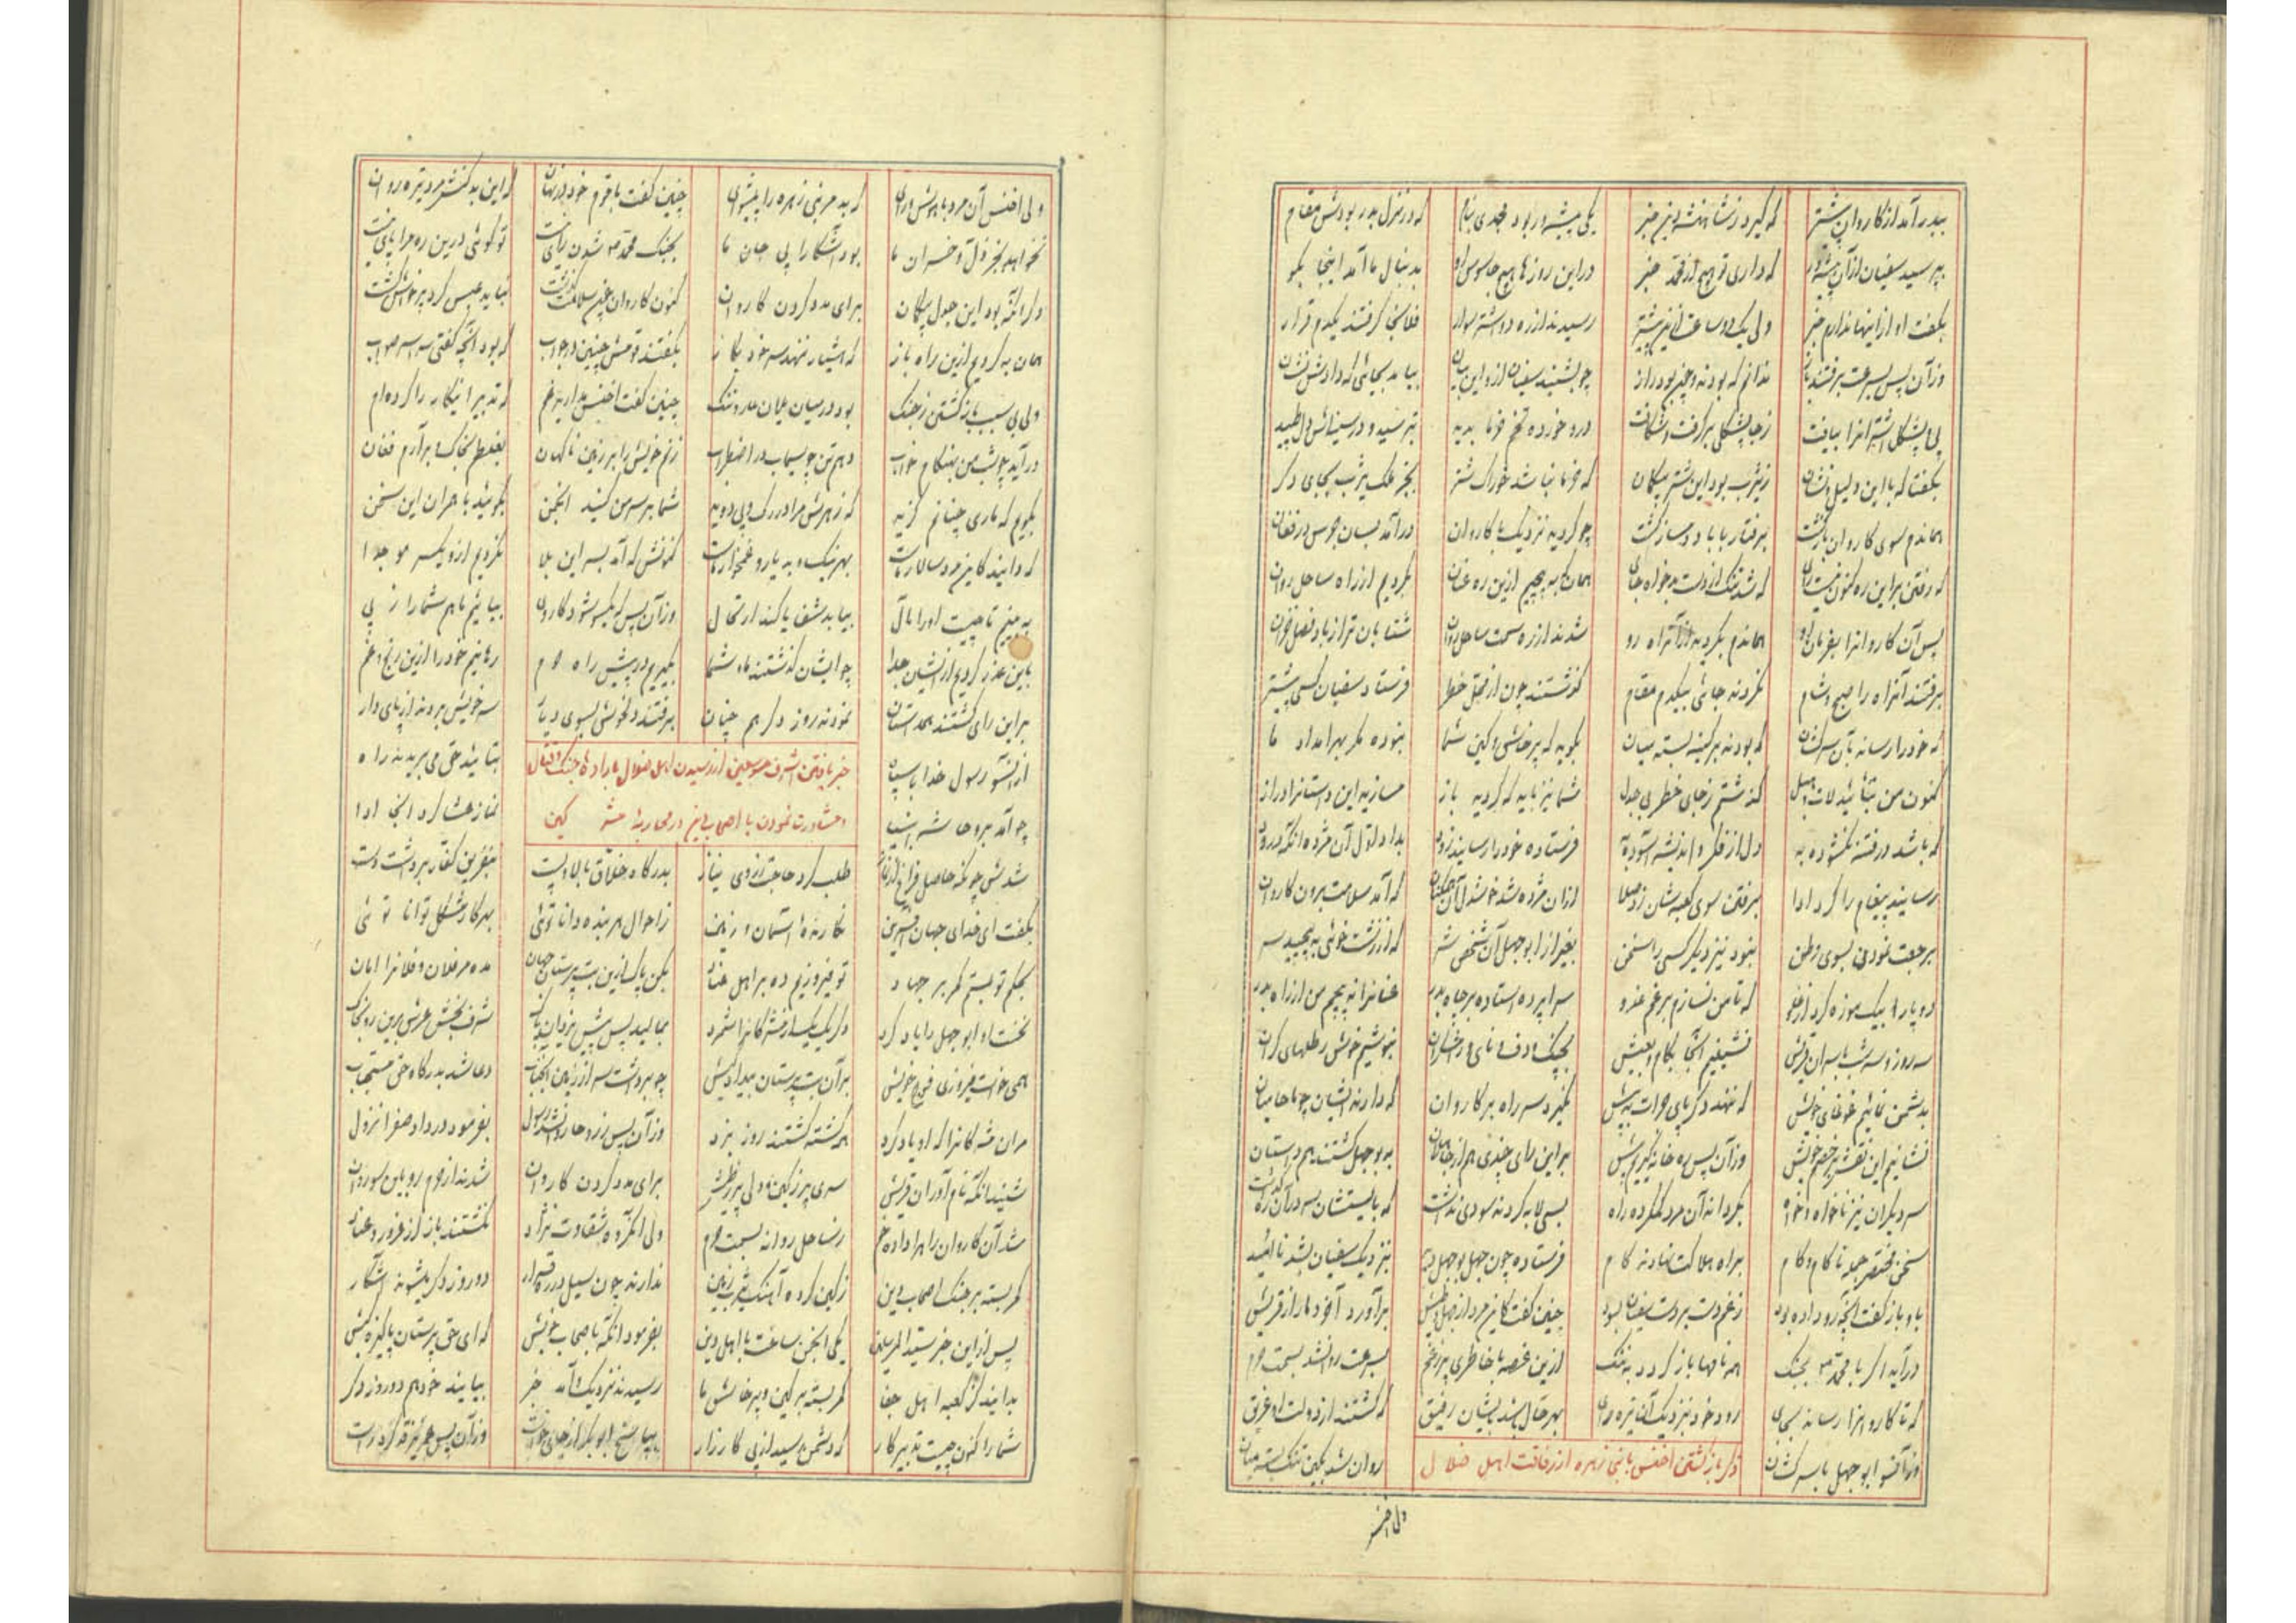 ببدر آمد از کاروان پیشتر که گیرد ز شاهنشه دین خبر یکی پیشه‌ور بود مجدی بنام که در منزل بدر بودش مقام
بپرسید سفیان از آن پیشه‌ور که داری تو هیچ از محمد خبر در این روزها هیچ جاسوس او بدنبال ما آمد اینجا بگو
بگفت او از اینها ندارم خبر ولی یک دو ساعت ازین پیشتر رسیدند از ره دو اشتر سوار فلانجا گرفتند یکدم قرار
وز آن پس بسرعت برفتند باز ندانم که بودند و چون بود راز چو بشنید سفیان ازو این بیان بیامد بجائی که دادش نشان
پی پشکل اشتران را بیافت ز جا پشکلی برگرفت و شکافت درو خورده تخم خرما بدید بترسید و در سینه‌اش دل طپید
بگفتا که با این دلیل و نشان ز یثرب بود این شتر بیگمان که خرما نباشد خوراک شتر بجز ملک یثرب بجای دگر
هماندم سوی کاروان بازگشت برفتار با باد دمساز گشت چو گردید نزدیک با کاروان درآمد بسان جرس در فغان
که رفتن براین ره کنون نیست رای که شد تنگ از دست بدخواه جای همان به که پیچیم ازین ره عنان بگردیم از راه ساحل روان
پس آن کاروانرا بفرمان او هماندم بگردید از آنراه رو شدند از ره سمت ساحل روان شتابان‌تر از باد فصل خزان
برفتند آنراه را صبح و شام نکردند جائی بیکدم مقام گذشتند چون از محل خطر فرستاد سفیان کسی پیشتر
که خود را رساند بآن سرکشان که بودند بر کینه بسته میان بگوید که پرخاش و کین شما نبوده مگر بهر امداد ما
کنون من بتأئید لات و هبل گذشتم ز جای خطر بی جدل شما نیز باید که گردید باز مسازید این داستانرا دراز
که باشد در فتنه نگشوده به دل از فکر و اندیشه آسوده به فرستاده خود را رسانید زود بداد اول آن مژده آنگه درود
رسانید پیغام را کرد ادا برفتن سوی کعبه‌شان زد صلا از آن مژده شد خوشدل آن همگنان که آمد سلامت برون کاروان
برجعت نمودن بسوی وطن نبود نیز دیگر کسی را سخن بغیر از ابوجهل آن شخص شر که از زشت خوئی بپیچید سر
دو پا را بیک موزه کرد از غلو که تا من نسازم بر غم عدو سراپرده استاده بر چاه بدر عنانرا نپیچم من از راه بدر
سه روز و سه شب با سران قریش نشینیم آنجا بکام و بعیش بچنگ و دف و نای و رامشگران بنوشیم خوش رطلهای گران
بدشمن نمائیم غوغای خویش که ننهد دگر پای جرات به پیش نگیرد سر راه بر کاروان که دارند ایشان چو ما حامیان
نشانیم این نقش بر خصم خویش وز آن پس ره خانه گیریم پیش براین رای چندی هم از جاهلان به بوجهل گشتند هم داستان
سر دیگران نیز ناخواه و خواه بگرداند آن مرد گمکرده راه بسی لابه کردند سودی نداشت که بایستشان سر در آن ره گذاشت
سخن مختصر جمله ناکام و کام براه هلاکت نهادند گام فرستاده چون جهل بوجهل دید بنزدیک سفیان بشد ناامید
باو بازگفت آنچه رو داده بود ز غم دست بر دست سفیان بسود چنین گفت کاین مرد از جهل و طیش برآورد آخر دمار از قریش
درآید اگر با محمد بجنگ همه نامها باز گردد به ننگ ازین غصه با خاطری پر ز غم بسرعت روان شد بسمت حرم
که تا کاروانرا رساند بجای رود خود بنزدیک آن تیره رای بهر حال شد بدیشان رفیق که گشتند از دولت او غریق
وز آنسو ابوجهل با سرکشان روان شد بکین تنگ بسته میان
ذکر بازگشتن اخنس با بنی زهره از رفاقت اهل ضلال
ولی اخنس
ولی اخنس آن مرد با هوش و رای که بد مر بنی زهره را پیشوای چنین گفت با قوم خود در نهان که این بد کنش مرد تیره روان
نخواهد بجز ذل و خسران ما بود آشکارا پی جان ما بجنگ محمد شدن رای نیست تو گوئی درین ره مرا پای نیست
دگر آنکه بود این جدل بیگمان برای مدد کردن کاروان کنون کاروان چون سلامت گذشت نباید عبث گرد پرخاش گشت
همان به که گردیم ازین راه باز که هشیار ننهد سر خود بگاز بگفتند قومش چنین در جواب که بود آنچه گفتی سراسر صواب
ولی بی سبب بازگشتن ز جنگ بود در میان عیان عار و ننگ چنین گفت اخنس مدارید غم که تدبیر اینکار را کرده‌ام
درآید چو شب من بهنگام خواب دهم تن چو سیماب در اضطراب زنم خویش را بر زمین ناگهان بغلطم بخاک و برآرم فغان
بگویم که ماری چنانم گزید که زهرش مرا در رگ و پی دوید شما بر سر من کنید انجمن بگوئید با دیگران این سخن
که دانید کاین مرد سالار ماست بهر نیک و بد یار و غمخوار ماست کنونش که آمد بسر این بلا نگردیم ازو یکسر مو جدا
به بینیم تا چیست او را مآل بیابد شفا یا کند ارتحال وز آن پس که یکسو شود کار وی بیائیم ما هم شما را ز پی
باین عذر گردیم از ایشان جدا چو ایشان گذشتند ماه شما بگیریم در پیش راه حرم رهانیم خود را ازین رنج و غم
براین رای گشتند همداستان نمودند روز دگر هم چنان برفتند و خوش بسوی دیار سر خویش بردند از پای دار
خبر یافتن اشرف مرسلین از رسیدن اهل ضلال باراده جنگ و قتال
و مشاورت نمودن با اصحاب دین در محاربه مشرکین
از آنسو رسول خدا با سپاه بتائید حق می‌بریدند راه
چو آمد بروحا شه انبیا نماز عشا کرد آنجا ادا
شدش چونکه حاصل فراغ از نماز طلب کرد حاجت ز روی نیاز بدرگاه خلاق بالا و پست بنفرین کفار برداشت دست
بگفت ای خدای جهان آفرین نگارنده آسمان و زمین ز احوال هر بنده دانا توئی بهر کار مشکل توانا توئی
بحکم تو بستم کمر بر جهاد تو فیروزیم ده بر اهل عناد بکن پاک ازین بت پرستان جهان مده مر فلان و فلانرا امان
نخست او ابوجهل را یاد کرد دگر یک بیک از مشرکانرا شمرد بمالید پس پیش یزدان پاک شرف بخش عرش برین رو بخاک
همی خواست فیروزی فوج خویش بر آن بت پرستان بیداد کیش چو برداشت سر از زمین آنجناب دعا شد بدرگاه حق مستجاب
مران مشرکانرا که او یاد کرد همه کشته گشتند روز نبرد وز آن پس ز روحا روان شد رسول بفرمود در داد صفرا نزول
شنید آنکه نام آوران قریش سری پر ز کین و دلی پر ز طیش برای مدد کردن کاروان شدند از حرم رو باین سو روان
شد آن کاروان را مراد ده حرم ز ساحل روانه بسمت حرم ولی آن گروه شقاوت نژاد نگشتند باز از غرور و عناد
کمر بسته بر جنگ اصحاب دین ز کین کرده آهنگ یثرب زمین ندارند چون سیل در ره قرار دو روز دگر میشوند آشکار
پس از این خبر سید المرسلین یکی انجمن ساخت با اهل دین بفرمود آنگه باصحاب خویش که ای حق پرستان پاکیزه کیش
بدانید کز کعبه اهل جفا کمر بسته بر کین و پرخاش ما رسیدند نزدیک و آمد خبر بیایند خود هم دو روز دگر
شما را کنون چیست تدبیر کار که دشمن رسید از پی کارزار بپاسخ ابوبکر از جای خاست وز آن پس عمر نیز قد کرد راست